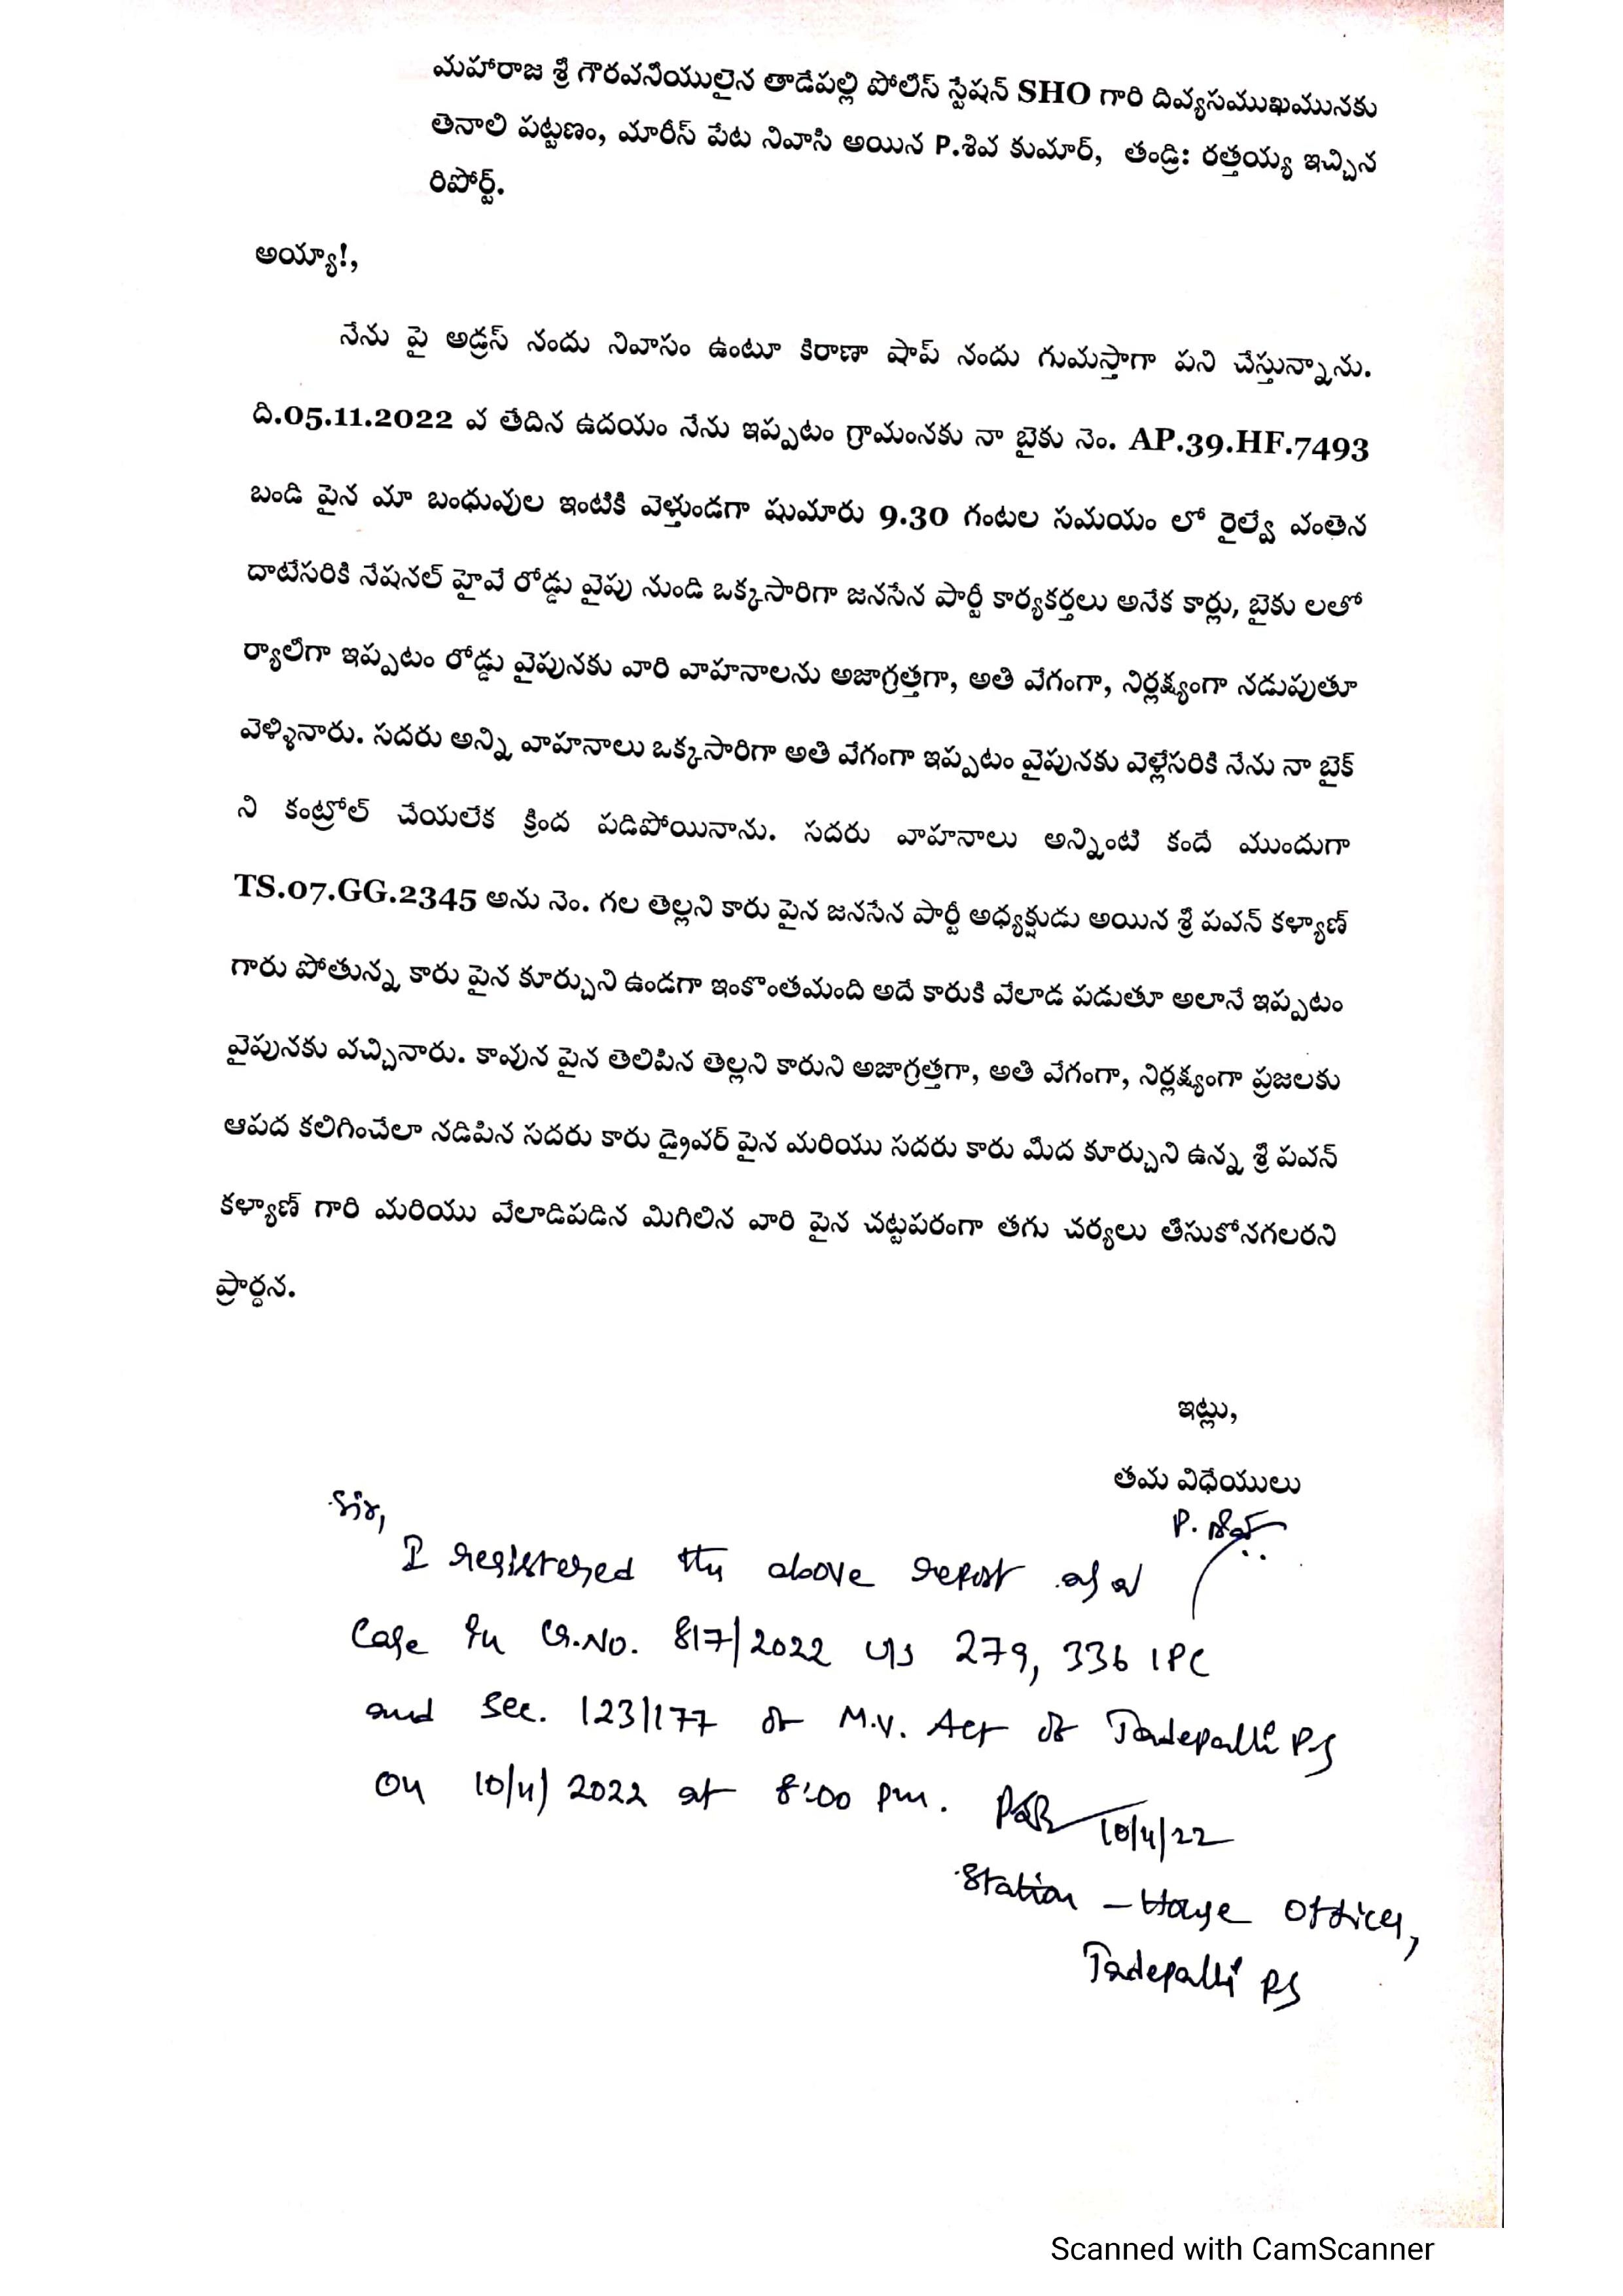 మహారాజ శ్రీ గౌరవనీయులైన తాడేపల్లి పోలీస్ స్టేషన్ SHO గారి దివ్యసముఖమునకు
తెనాలి పట్టణం, మారీస్ పేట నివాసి అయిన P.శివ కుమార్, తండ్రి: రత్తయ్య ఇచ్చిన
రిపోర్ట్.
అయ్యా!,
నేను పై అడ్రస్ నందు నివాసం ఉంటూ కిరాణా షాప్ నందు గుమస్తాగా పని చేస్తున్నాను.
ది.05.11.2022 వ తేదిన ఉదయం నేను ఇప్పటం గ్రామంనకు నా బైకు నెం. AP.39.HF.7493
బండి పైన మా బంధువుల ఇంటికి వెళ్తుండగా షుమారు 9.30 గంటల సమయం లో రైల్వే వంతెన
దాటేసరికి నేషనల్ హైవే రోడ్డు వైపు నుండి ఒక్కసారిగా జనసేన పార్టీ కార్యకర్తలు అనేక కార్లు, బైకు లతో
ర్యాలీగా ఇప్పటం రోడ్డు వైపునకు వారి వాహనాలను అజాగ్రత్తగా, అతి వేగంగా, నిర్లక్ష్యంగా నడుపుతూ
వెళ్ళినారు. సదరు అన్ని వాహనాలు ఒక్కసారిగా అతి వేగంగా ఇప్పటం వైపునకు వెళ్లేసరికి నేను నా బైక్
ని కంట్రోల్ చేయలేక క్రింద పడిపోయినాను. సదరు వాహనాలు అన్నింటి కందే ముందుగా
TS.07.GG.2345 అను నెం. గల తెల్లని కారు పైన జనసేన పార్టీ అధ్యక్షుడు అయిన శ్రీ పవన్ కళ్యాణ్
గారు పోతున్న కారు పైన కూర్చుని ఉండగా ఇంకొంతమంది అదే కారుకి వేలాడ పడుతూ అలానే ఇప్పటం
వైపునకు వచ్చినారు. కావున పైన తెలిపిన తెల్లని కారుని అజాగ్రత్తగా, అతి వేగంగా, నిర్లక్ష్యంగా ప్రజలకు
ఆపద కలిగించేలా నడిపిన సదరు కారు డ్రైవర్ పైన మరియు సదరు కారు మీద కూర్చుని ఉన్న శ్రీ పవన్
కళ్యాణ్ గారి మరియు వేలాడిపడిన మిగిలిన వారి పైన చట్టపరంగా తగు చర్యలు తీసుకోనగలరని
ప్రార్ధన.
ఇట్లు,
తమ విధేయులు
P.
Sir,
I registered the above report as a
Case in Cr.No. 817/2022 u/s 279, 336 IPC
and Sec. 123/177 of M.V. Act of Tadepalli PS
on 10/11/2022 at 8:00 pm.
10/11/22
Station - House Officer,
Tadepalli PS
Scanned with CamScanner